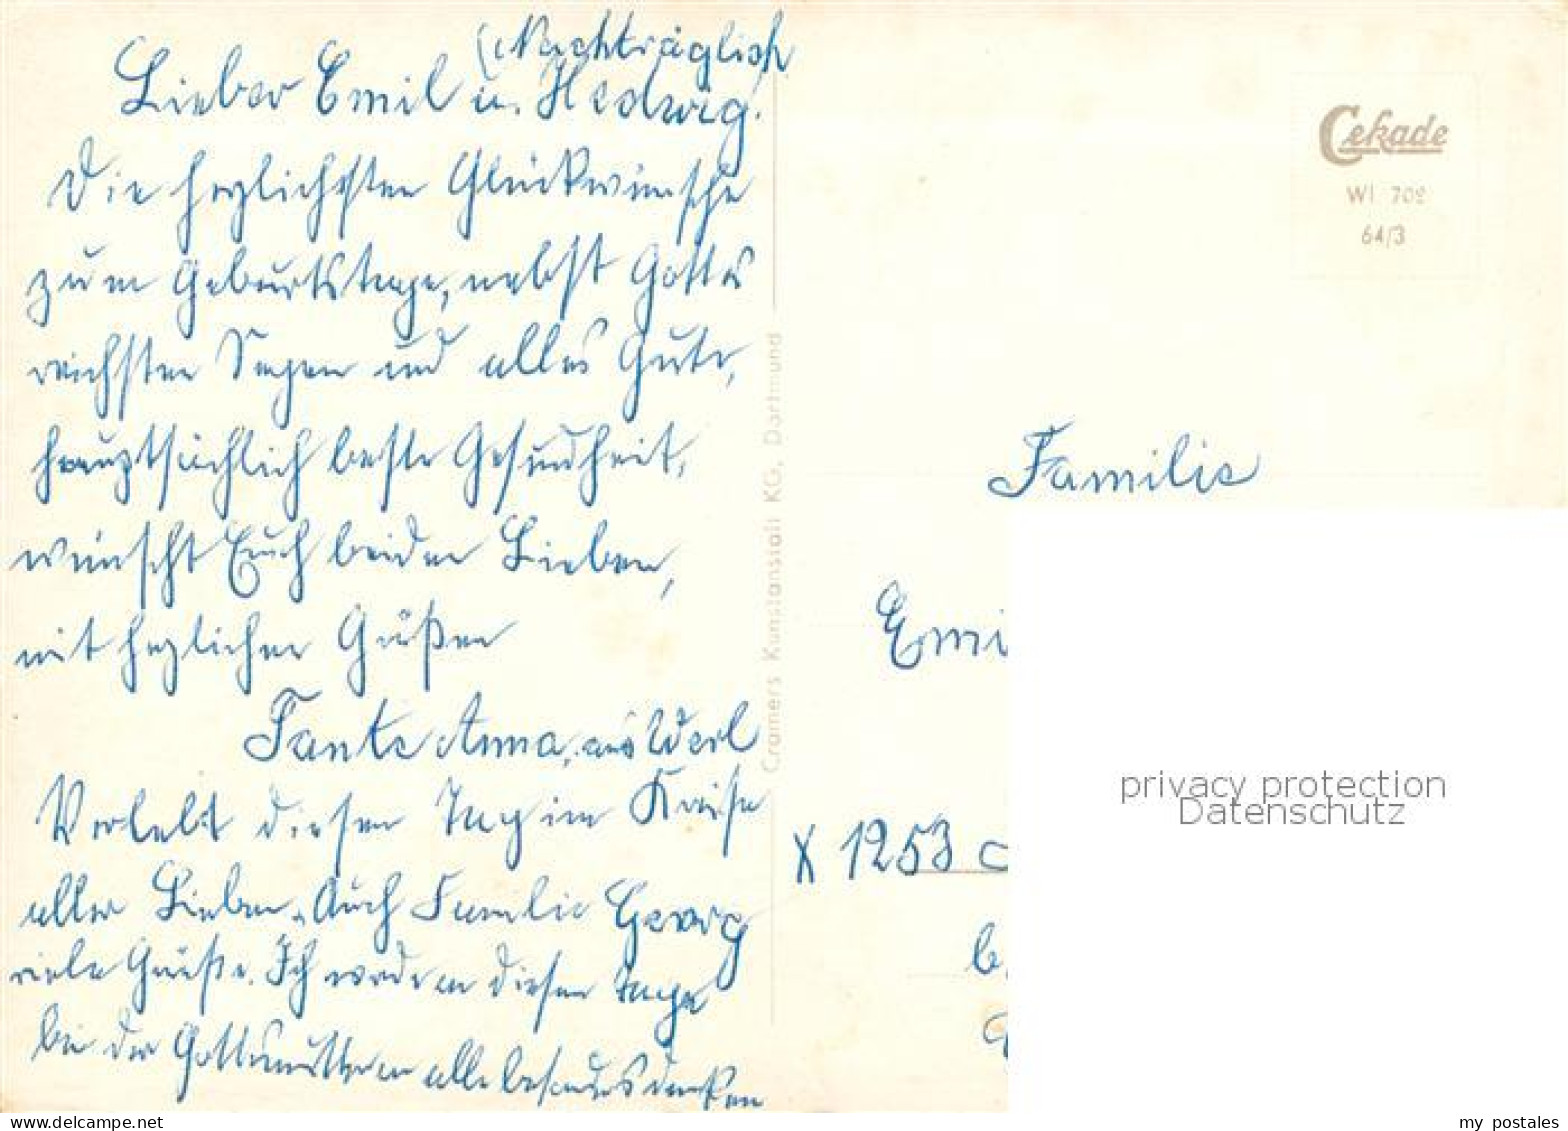 (Nachträglich
Lieber Emil u. Hedwig!
Die herzlichsten Glückwünsche
zum Geburtstage, nebst Gottes
reichsten Segen und alles Gute,
hauptsächlich beste Gesundheit,
wünscht Euch beiden Lieben,
mit herzlichen Grüßen
Tante Anna, aus Werl
Verlebt diesen Tag im Kreise
aller Lieben. Auch Familie Georg
viele Grüße. Ich werde an diesen Tage
bei der Gottesmutter an alle besonders denken
Cramers Kunstanstalt KG, Dortmund
Cekade
WI 702
64/3
Familie
Emi
X 1253
b.
privacy protection
Datenschutz
my postales